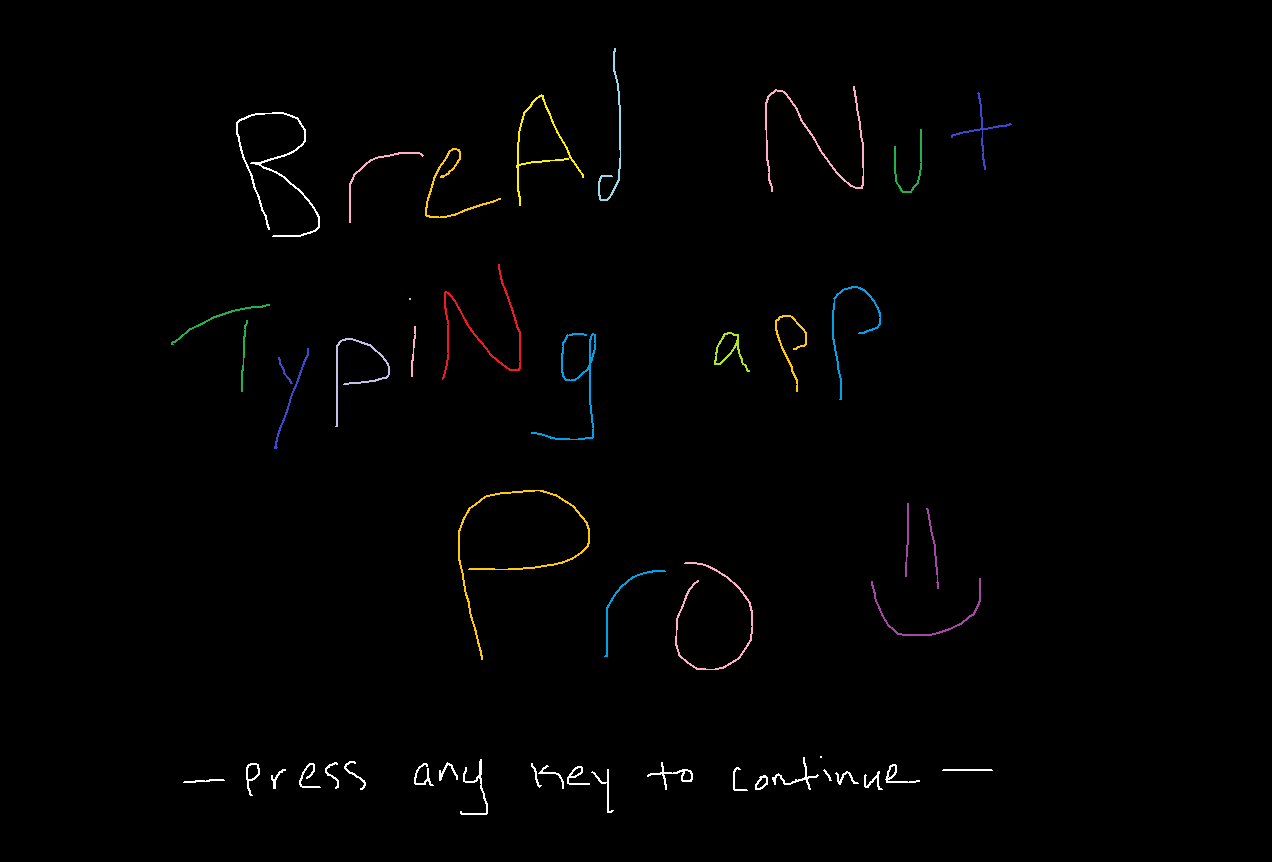 BreAd Nut
TypiNg app
Pro
— press any key to continue —